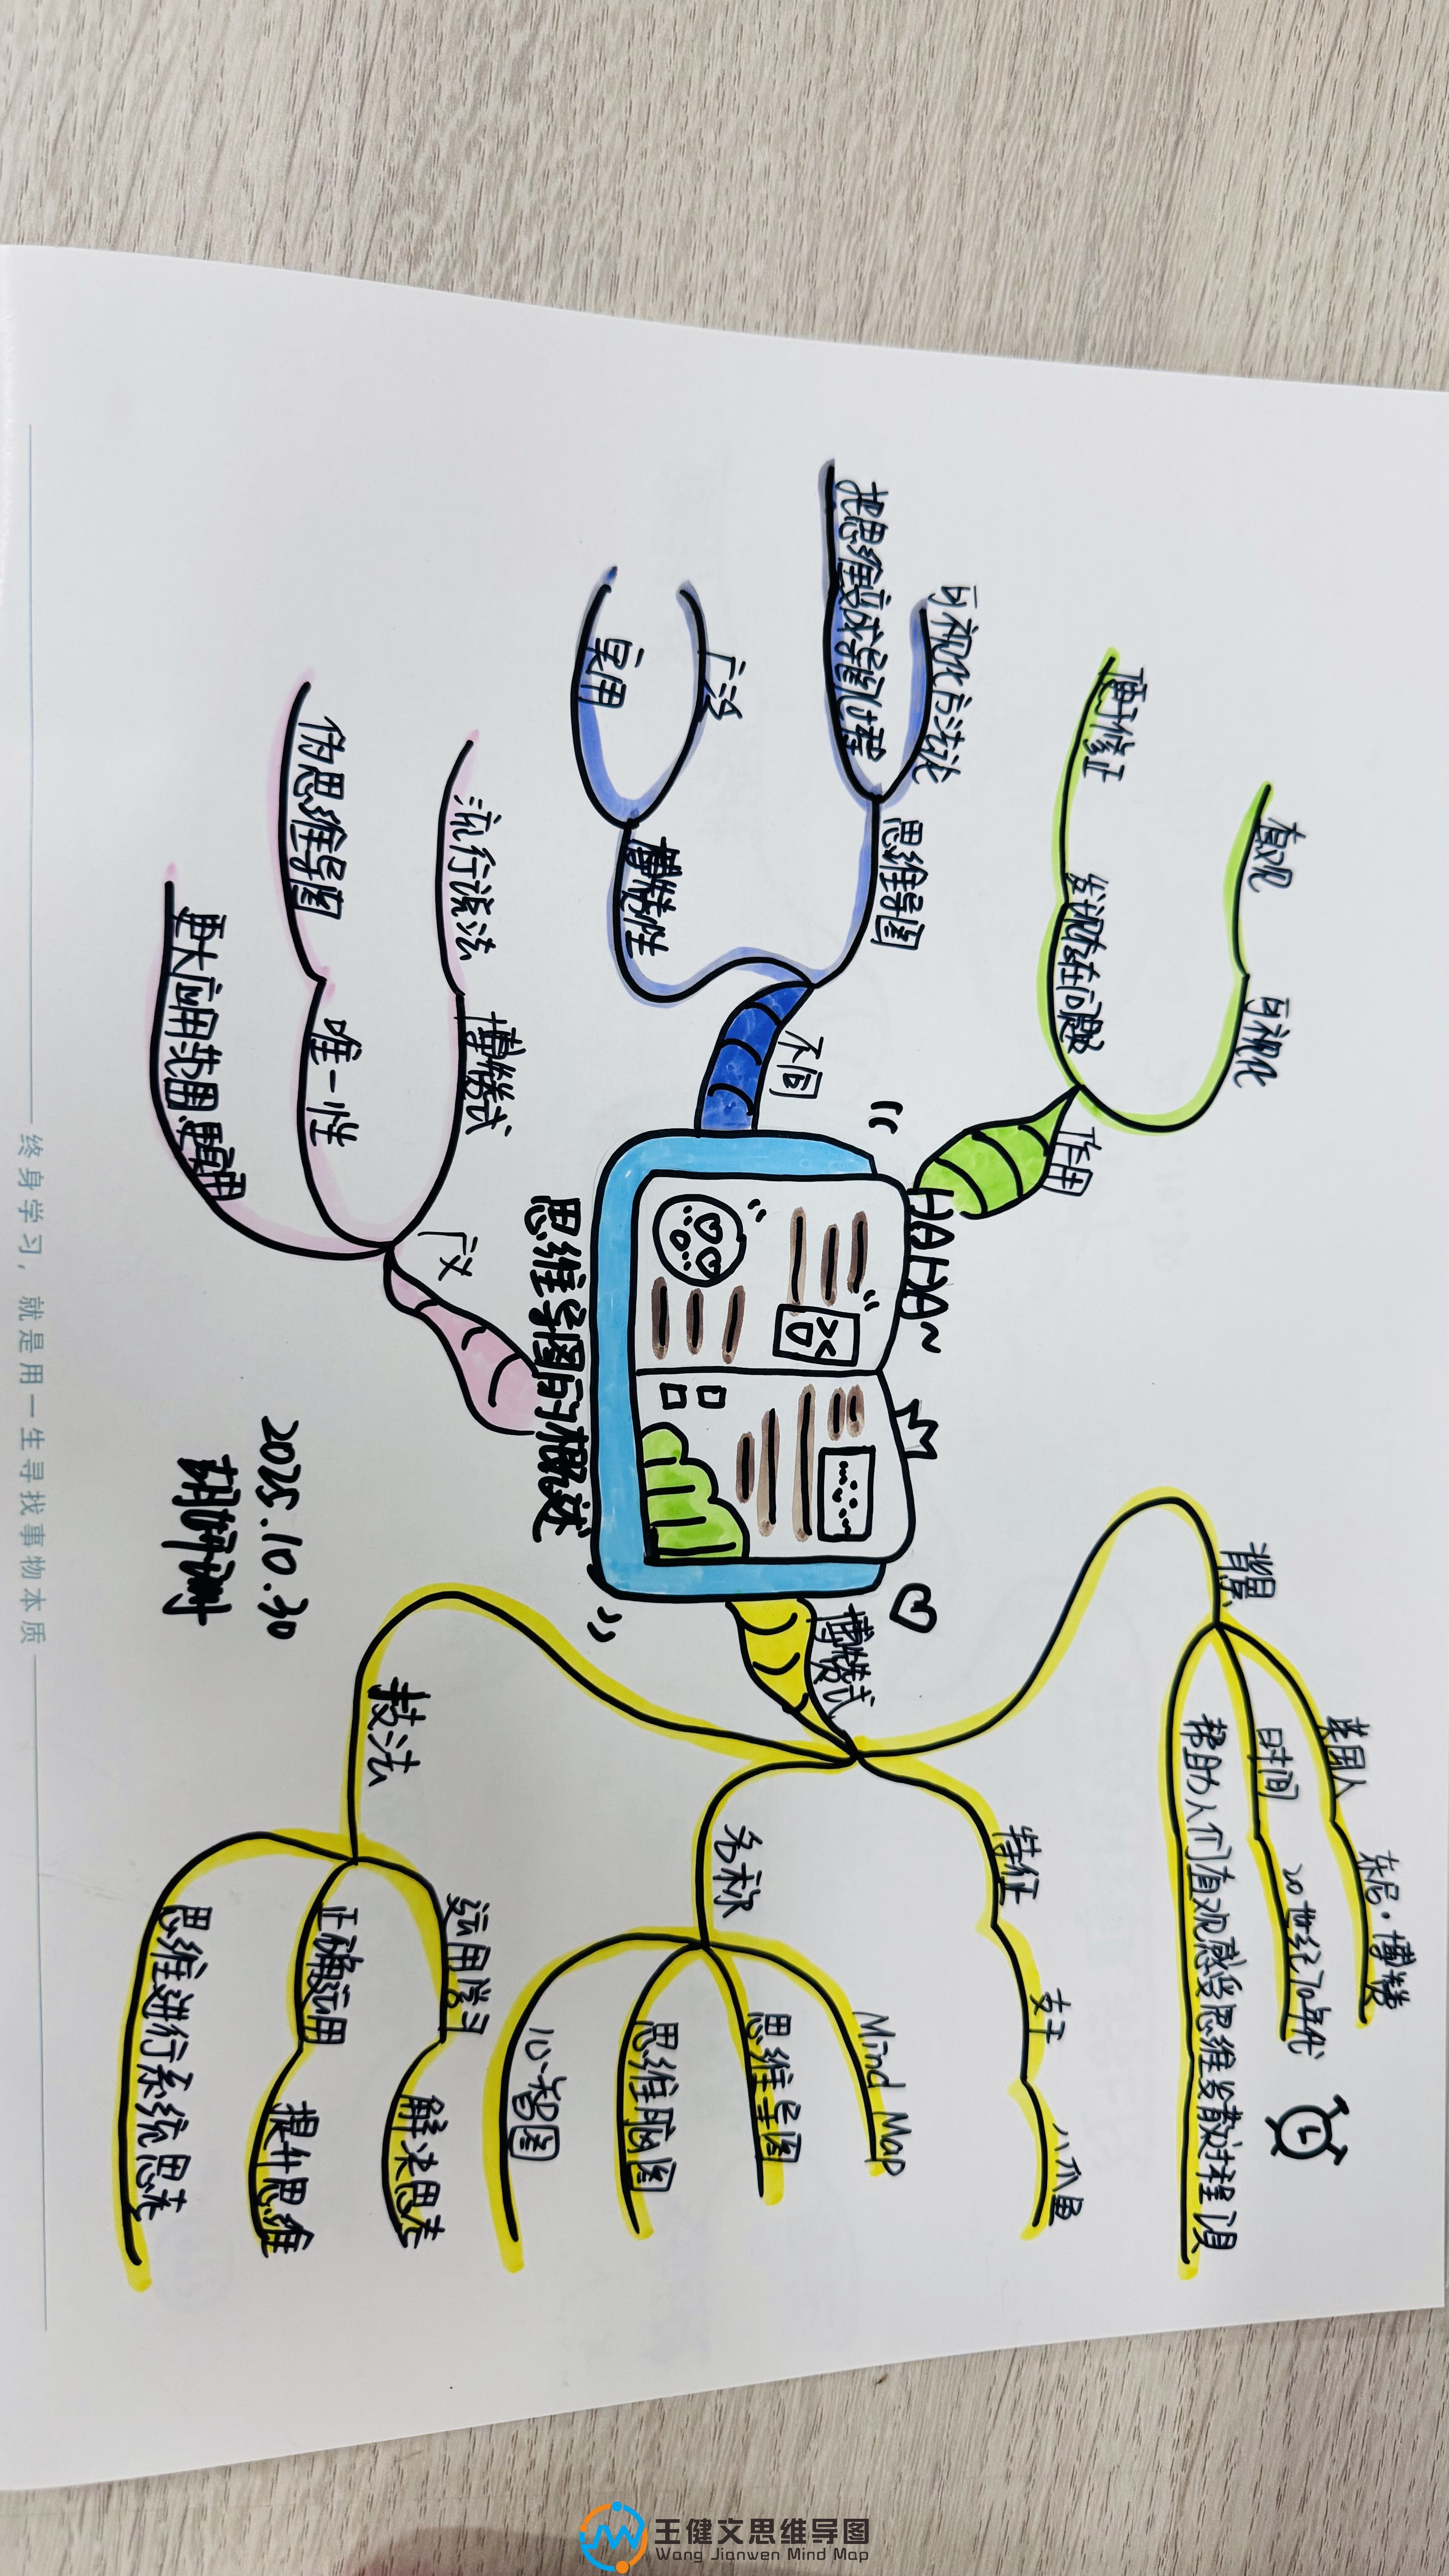 思维导图的概述
HAHA~
博赞式
背景
英国人
东尼·博赞
时间
20世纪70年代
帮助人们直观感受思维发散过程
特征
章鱼
八爪鱼
名称
Mind Map
思维导图
思维脑图
心智图
技法
运用学习
解决思考
正确运用
提升思维
思维进行系统思考
广义
博赞式
流行说法
唯一性
伪思维导图
更大应用范围
不同
思维导图
可视化方法论
把思维变成导图过程
博赞特性
广泛
实用
作用
可视化
直观
发现存在问题
便于修正
2025.10.30
终身学习，就是用一生寻找事物本质
王健文思维导图
Wang Jianwen Mind Map